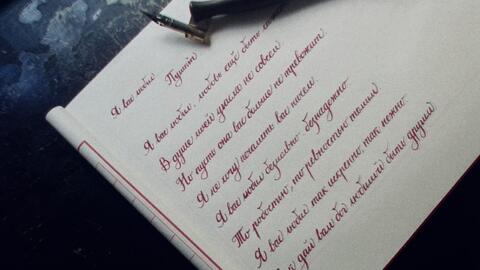 Я вас любил Пушкин
Я вас любил, любовь ещё быть
В душе моей угасла не совсем.
Но пусть она вас больше не тревожит.
Я не хочу печалить вас ничем.
Я вас любил безмолвно безнадежно
То робостью, то ревностью томим
Я вас любил так искренно, так нежно
дай вам бог любимой быть другим